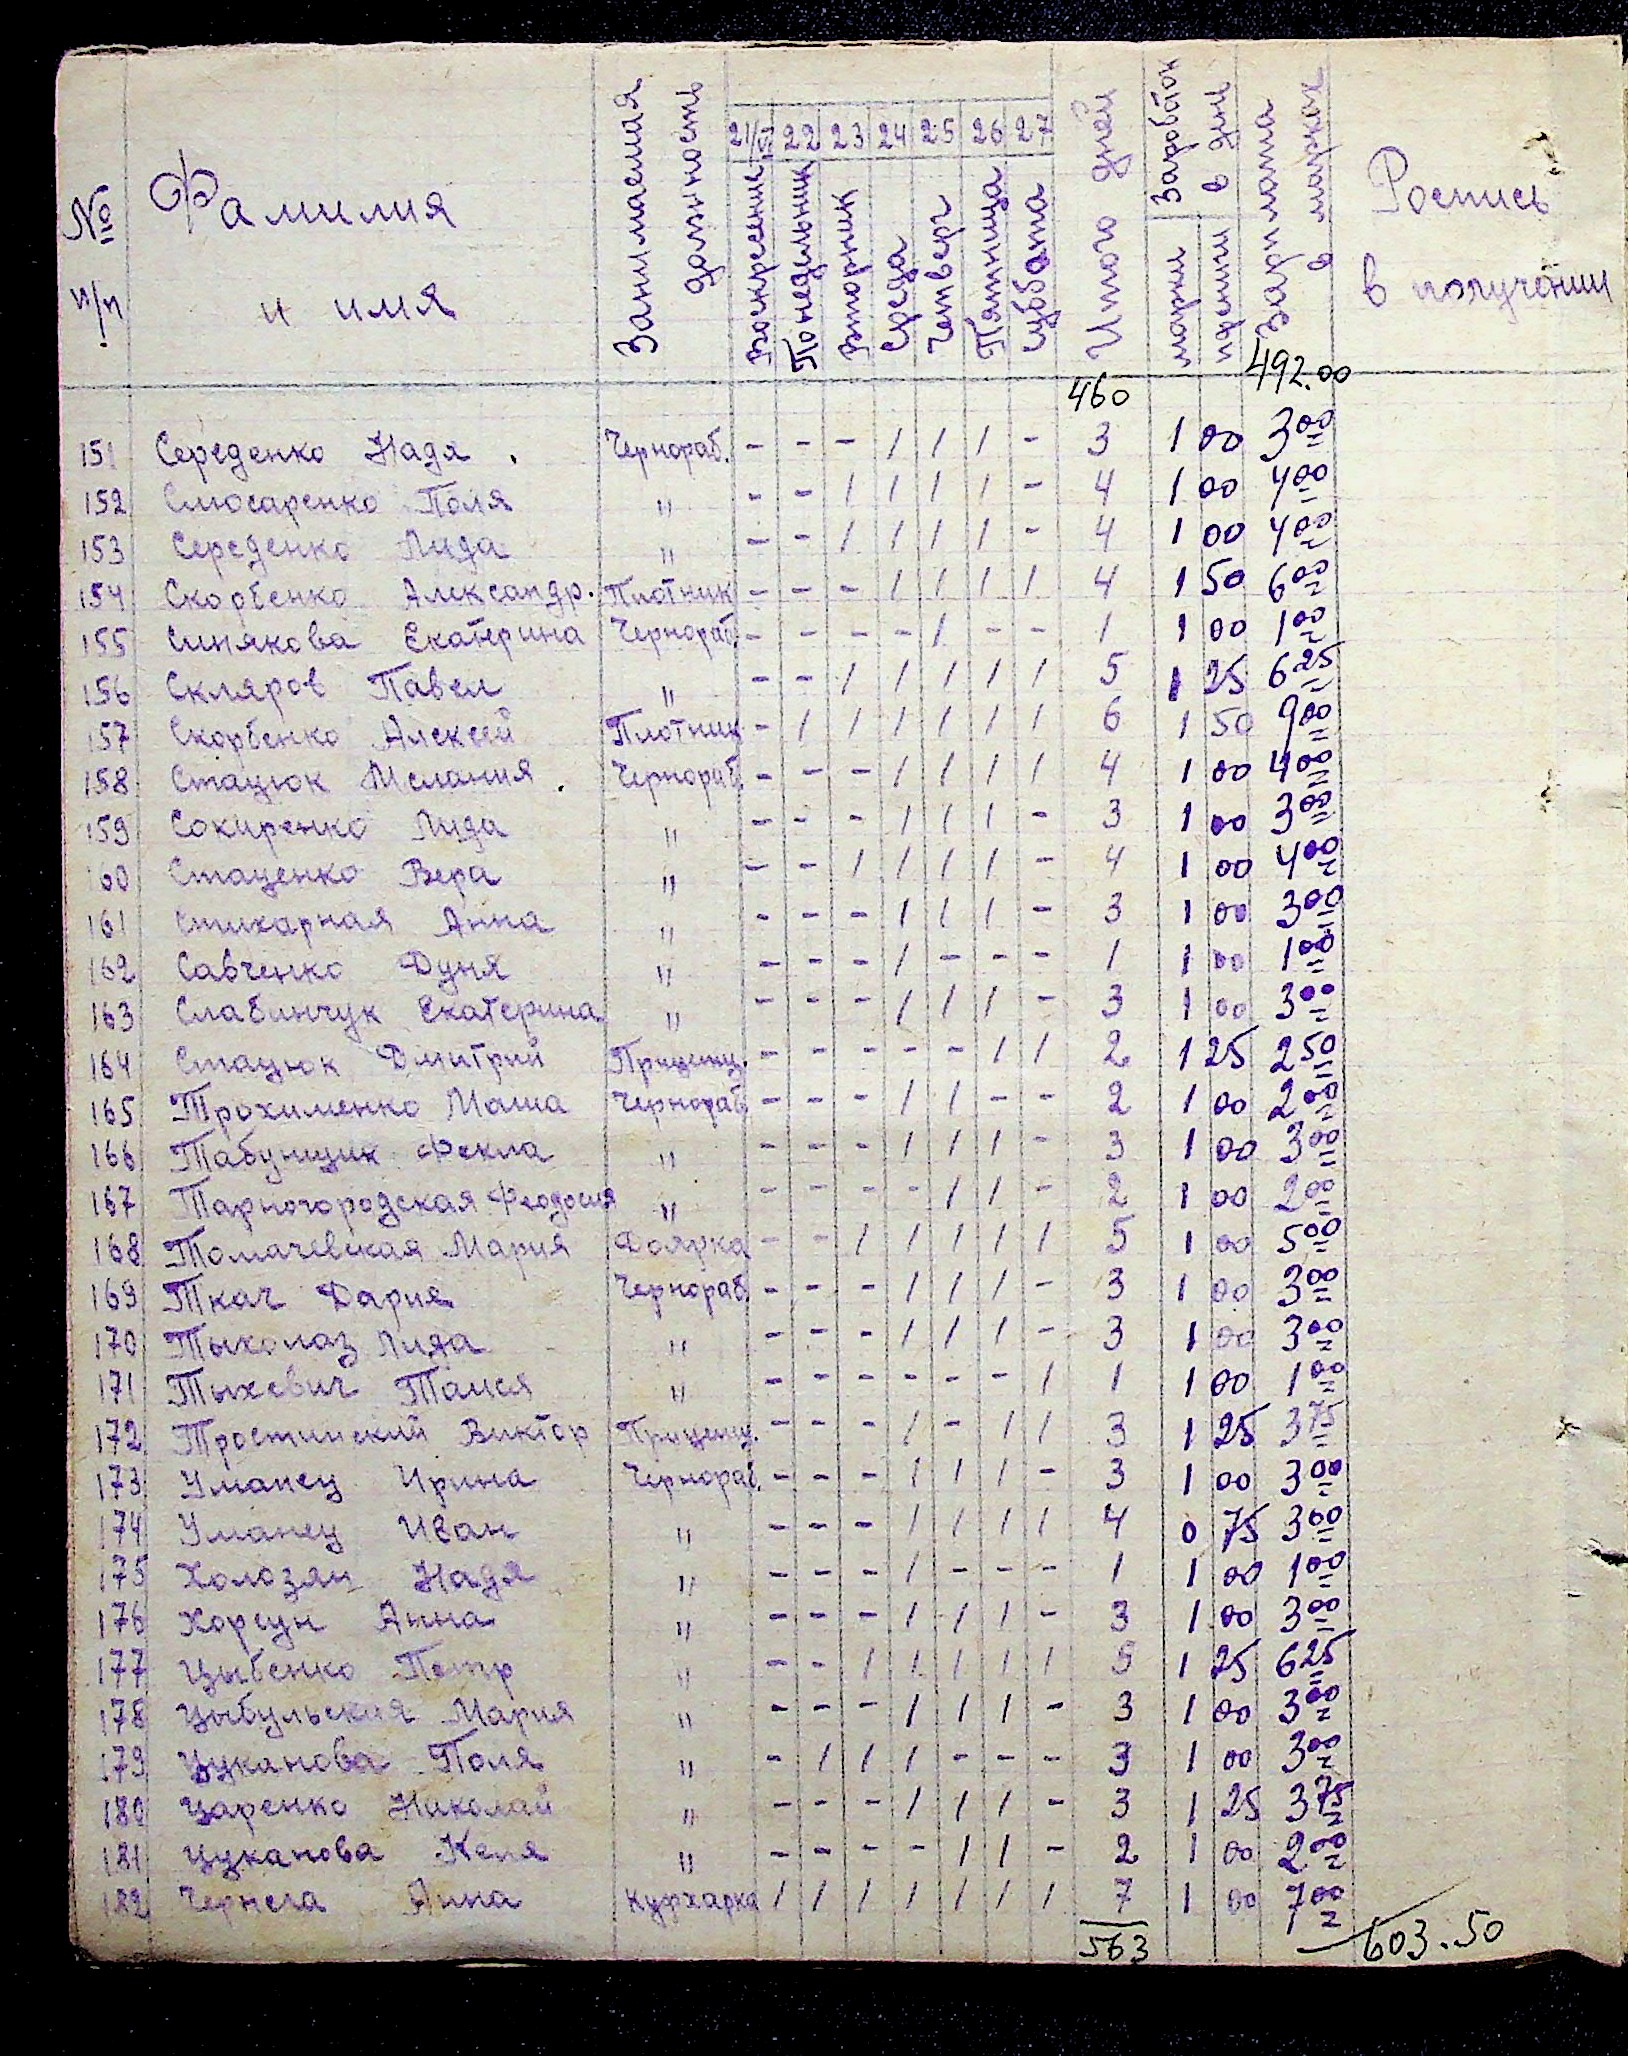 № п/п Фамилия и имя Занимаемая должность 21/VI 22 23 24 25 26 27 Итого дней Заработок в день Зарплата в марках Роспись в получении
воскресение Понедельник вторник среда четверг Пятница суббота марки пфенниги
460 492.00
151 Середенко Надя . Чернораб. - - - / / / - 3 1 00 3 00
152 Слюсаренко Поля " - - / / / / - 4 1 00 4 00
153 Середенко Лида " - - / / / / - 4 1 00 4 00
154 Скорбенко Александр. Плотник - - - / / / / 4 1 50 6 00
155 Синякова Екатерина Чернораб. - - - - / - - 1 1 00 1 00
156 Скляров Павел " - - / / / / / 5 1 25 6 25
157 Скорбенко Алексей Плотник - / / / / / / 6 1 50 9 00
158 Стацюк Мелания . Чернораб. - - - / / / / 4 1 00 4 00
159 Сокиренко Лида " - - - / / / - 3 1 00 3 00
160 Стаценко Вера " - - / / / / - 4 1 00 4 00
161 Стихарная Анна " - - - / / / - 3 1 00 3 00
162 Савченко Дуня " - - - / - - - 1 1 00 1 00
163 Слабинчук Екатерина " - - - / / / - 3 1 00 3 00
164 Стацюк Дмитрий Прицепщ. - - - - - / / 2 1 25 2 50
165 Трохименко Маша Чернораб. - - - / / - - 2 1 00 2 00
166 Табунщик Фекла " - - - / / / - 3 1 00 3 00
167 Тарногородская Феодосия " - - - - / / - 2 1 00 2 00
168 Томачевская Мария Доярка - - / / / / / 5 1 00 5 00
169 Ткач Дария Чернораб. - - - / / / - 3 1 00 3 00
170 Тыхолаз Лида " - - - / / / - 3 1 00 3 00
171 Тыхевич Таися " - - - - - - / 1 1 00 1 00
172 Тростинский Виктор Прицепщ. - - - / - / / 3 1 25 3 75
173 Уманец Ирина Чернораб. - - - / / / - 3 1 00 3 00
174 Уманец Иван " - - - / / / / 4 0 75 3 00
175 Холозян Надя " - - - / - - - 1 1 00 1 00
176 Хорсун Анна " - - - / / / - 3 1 00 3 00
177 Цыбенко Петр " - - / / / / / 5 1 25 6 25
178 Цыбульская Мария " - - - / / / - 3 1 00 3 00
179 Цуканова Поля " - / / / - - - 3 1 00 3 00
180 Царенко Николай " - - - / / / - 3 1 25 3 75
181 Цуканова Женя " - - - - / / - 2 1 00 2 00
182 Чернега Анна Кухарка / / / / / / / 7 1 00 7 00
563 603.50